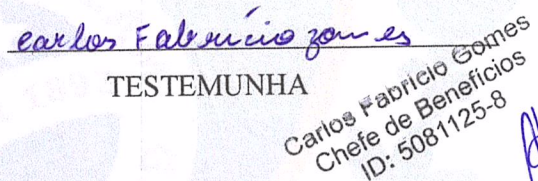 Carlos Fabrício Gomes
TESTEMUNHA
Carlos Fabrício Gomes
Chefe de Benefícios
ID: 5081125-8